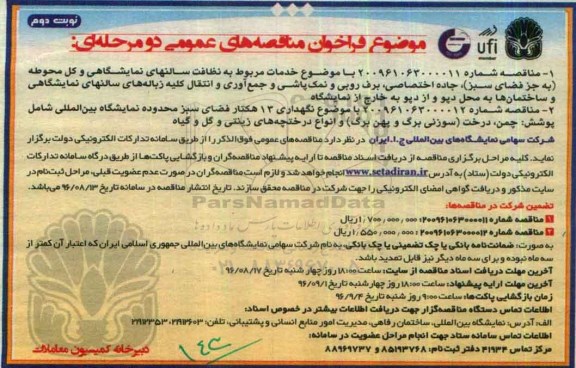 نوبت دوم
موضوع فراخوان مناقصه‌های عمومی دو مرحله‌ای:
ufi
۱- مناقصه شماره ۲۰۰۹۶۱۰۶۳۰۰۰۰۱۱ با موضوع خدمات مربوط به نظافت سالنهای نمایشگاهی و کل محوطه
(به جز فضای سبز)، جاده اختصاصی، برف روبی و نمک پاشی و جمع‌آوری و انتقال کلیه زباله‌های سالنهای نمایشگاهی
و ساختمان‌ها به محل دپو و از دپو به خارج از نمایشگاه
۲- مناقصه شماره ۲۰۰۹۶۱۰۶۳۰۰۰۰۱۲ با موضوع نگهداری ۱۳ هکتار فضای سبز محدوده نمایشگاه بین‌المللی شامل
پوشش: چمن، درخت (سوزنی برگ و پهن برگ) و انواع درختچه‌های زینتی و گل و گیاه
شرکت سهامی نمایشگاه‌های بین‌المللی ج.ا.ایران در نظر دارد مناقصه‌های عمومی فوق‌الذکر را از طریق سامانه تدارکات الکترونیکی دولت برگزار
نماید. کلیه مراحل برگزاری مناقصه از دریافت اسناد مناقصه تا ارایه پیشنهاد مناقصه‌گران و بازگشایی پاکت‌ها از طریق درگاه سامانه تدارکات
الکترونیکی دولت (ستاد) به آدرس www.setadiran.ir انجام خواهد شد و لازم است مناقصه‌گران در صورت عدم عضویت قبلی، مراحل ثبت‌نام در
سایت مذکور و دریافت گواهی امضای الکترونیکی را جهت شرکت در مناقصه محقق سازند. تاریخ انتشار مناقصه در سامانه تاریخ ۹۶/۰۸/۱۳ می‌باشد.
ParsNamadData
تضمین شرکت در مناقصه‌ها:
۱ مناقصه شماره ۲۰۰۹۶۱۰۶۳۰۰۰۰۱۱: ۱/۷۰۰/۰۰۰/۰۰۰ ریال
۲ مناقصه شماره ۲۰۰۹۶۱۰۶۳۰۰۰۰۱۲: ۱/۵۵۰/۰۰۰/۰۰۰ ریال
به صورت: ضمانت‌نامه بانکی یا چک تضمینی یا چک بانکی، به نام شرکت سهامی نمایشگاه‌های بین‌المللی جمهوری اسلامی ایران که اعتبار آن کمتر از
سه ماه نبوده و برای سه ماه دیگر نیز قابل تمدید باشد.
آخرین مهلت دریافت اسناد مناقصه از سایت: ساعت ۱۸:۰۰ روز چهار شنبه تاریخ ۹۶/۰۸/۱۷
آخرین مهلت ارایه پیشنهاد: ساعت ۱۸:۰۰ روز چهارشنبه تاریخ ۹۶/۰۹/۱
زمان بازگشایی پاکت‌ها: ساعت ۹:۰۰ روز شنبه تاریخ ۹۶/۹/۴
اطلاعات تماس دستگاه مناقصه‌گزار جهت دریافت اطلاعات بیشتر در خصوص اسناد:
الف: آدرس: نمایشگاه بین‌المللی، ساختمان رفاهی، مدیریت امور منابع انسانی و پشتیبانی، تلفن: ۲۱۹۱۲۶۰۳-۲۱۹۱۲۳۵۳
اطلاعات تماس سامانه ستاد جهت انجام مراحل عضویت در سامانه:
مرکز تماس ۴۱۹۳۴ دفتر ثبت‌نام: ۸۵۱۹۳۷۶۸ و ۸۸۹۶۹۷۳۷
دبیرخانه کمیسیون معاملات